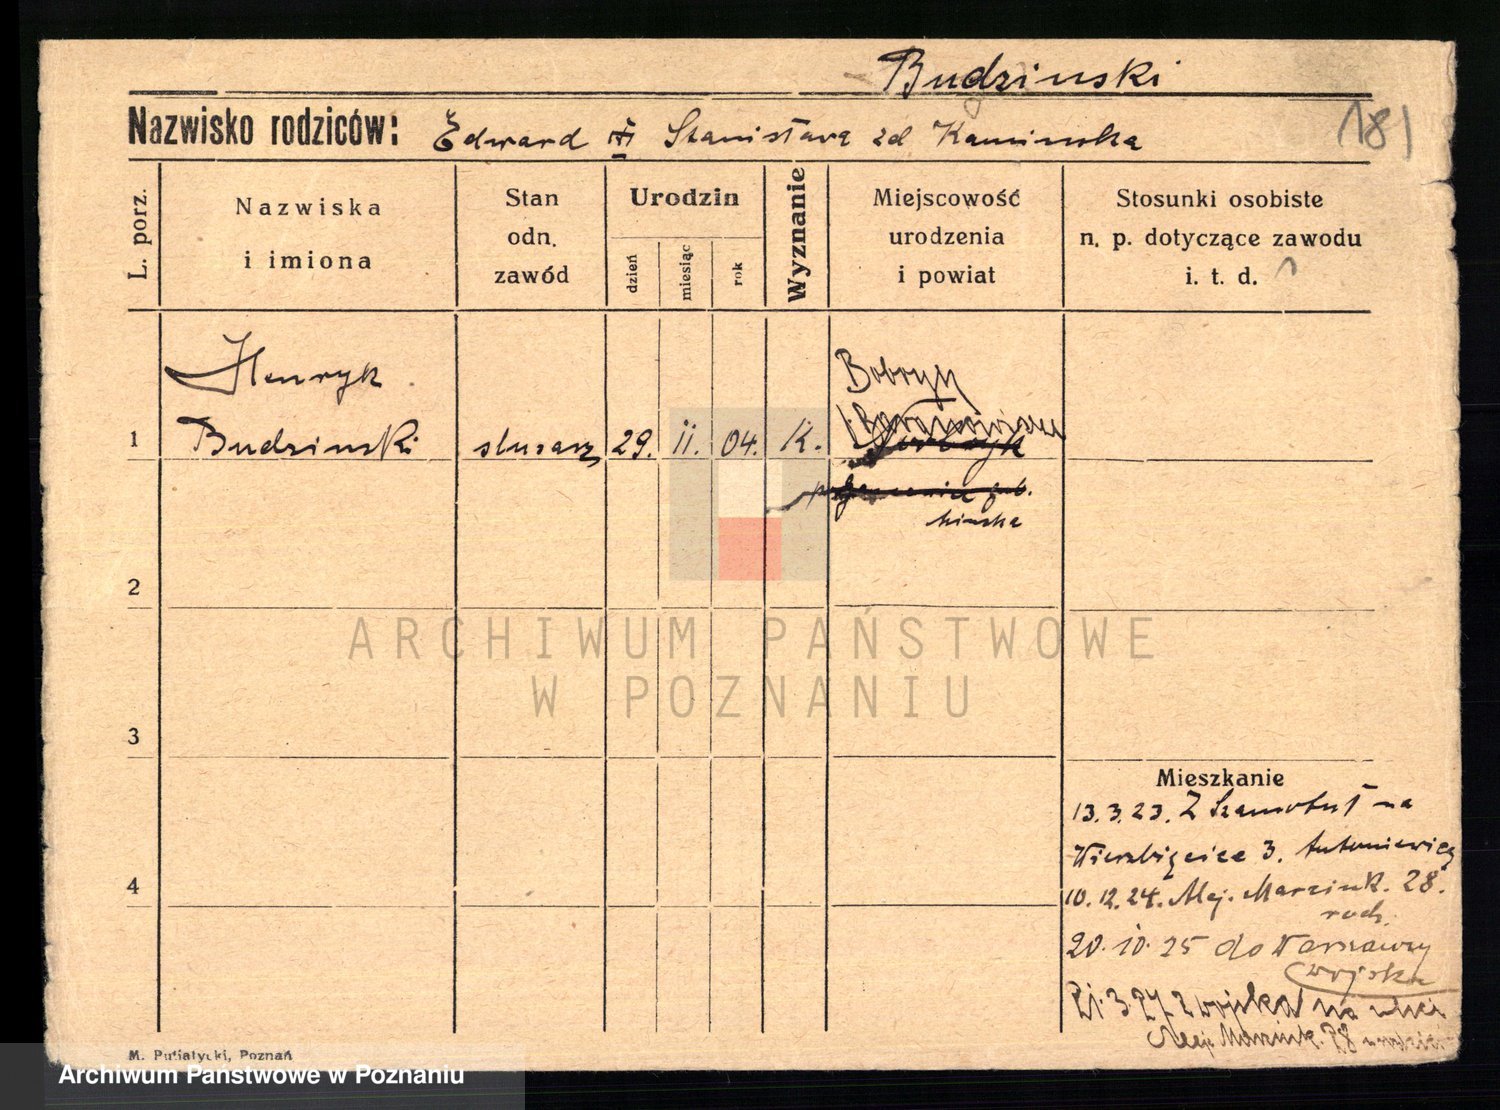 Budzinski
Nazwisko rodziców: Edward i Stanisława zd Kaminska
181
L. porz.
Nazwiska
i imiona
Stan
odn.
zawód
Urodzin
dzień
miesiąc
rok
Wyznanie
Miejscowość
urodzenia
i powiat
Stosunki osobiste
n. p. dotyczące zawodu
i. t. d.
Henryk
1 Budzinski ślusarz 29. II. 04. K.
2
3
4
Mieszkanie
13.3.23. Z Szamotuł na
Wierzbięcice 3. Antoniewicz
10.12.24. Alej. Marcink. 28.
rodz.
20.10.25 do Warszawy
wojska
21.3.27 z wojska na ulicę
Aleje Marcink. 28
ARCHIWUM PAŃSTWOWE
W POZNANIU
M. Putiatycki, Poznań
Archiwum Państwowe w Poznaniu